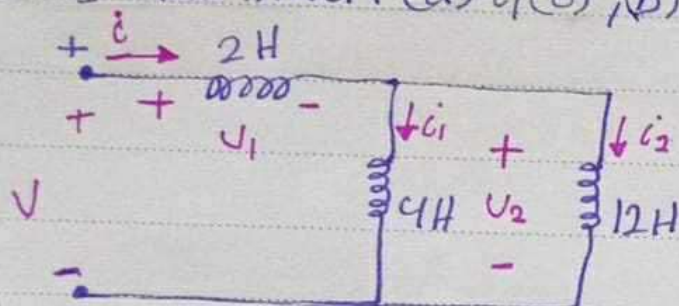 (a) i(0), (b)
i 2H
+
+ + -
v₁ ↓i₁ + ↓i₂
V 4H v₂ 12H
- -